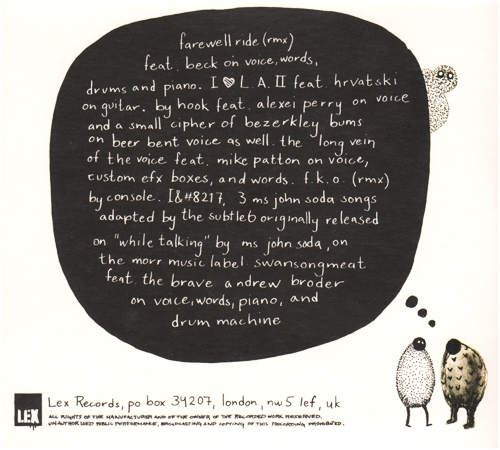 farewell ride (rmx)
feat. beck on voice, words,
drums and piano. I ♥ L.A. II feat. hrvatski
on guitar. by hook feat. alexei perry on voice
and a small cipher of bezerkley bums
on beer bent voice as well. the long vein
of the voice feat. mike patton on voice,
custom efx boxes, and words. f.k.o. (rmx)
by console. I&#8217, 3 ms john soda songs
adapted by the subtle6 originally released
on "while talking" by ms john soda, on
the morr music label. swansongmeat
feat. the brave andrew broder
on voice, words, piano, and
drum machine
LEX
Lex Records, po box 34207, london, nw5 1ef, uk
ALL RIGHTS OF THE MANUFACTURER AND OF THE OWNER OF THE RECORDED WORK RESERVED.
UNAUTHORISED PUBLIC PERFORMANCE, BROADCASTING AND COPYING OF THIS RECORDING PROHIBITED.